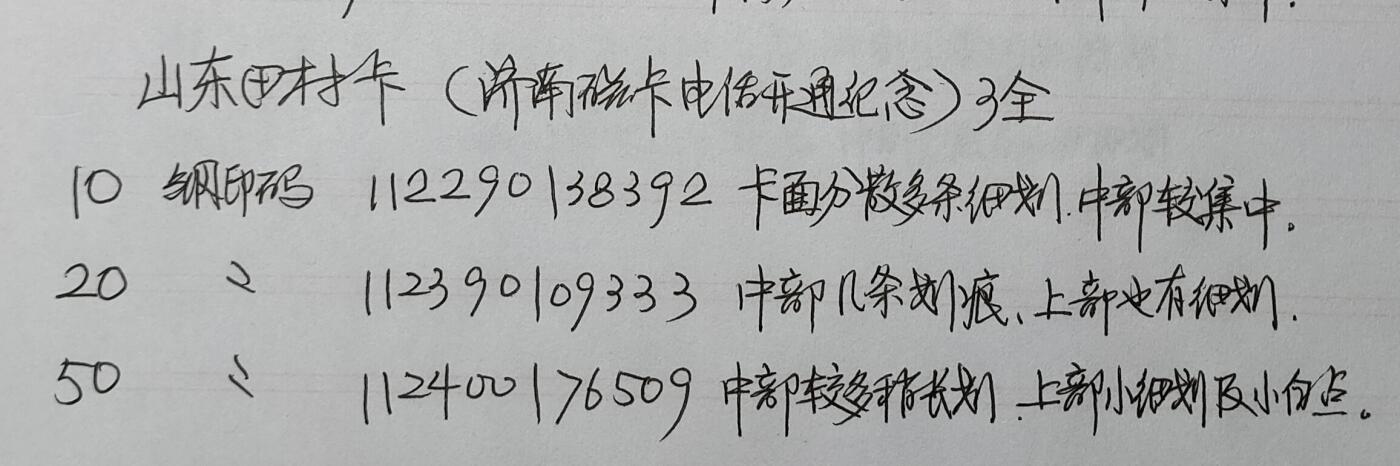 山东田村卡（济南磁卡电话开通纪念）3全
10 钢印码 112290138392 卡面分散多条细划.中部较集中。
20 〃 112390109333 中部几条划痕、上部也有细划.
50 〃 112400176509 中部较多稍长划.上部小细划及小白点。